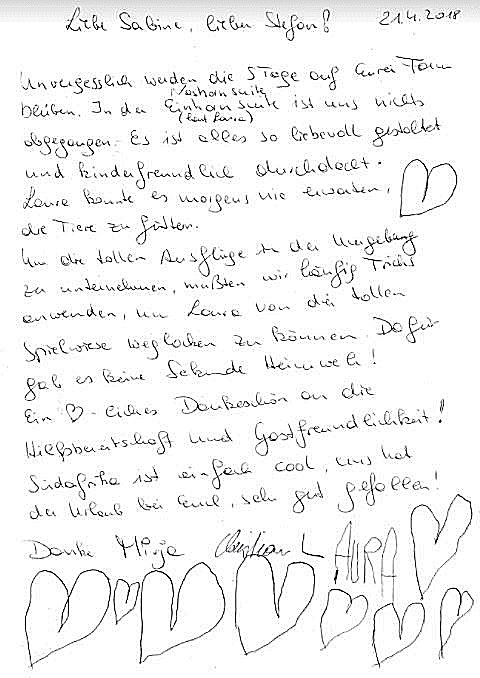 Liebe Sabine, lieber Stefan! 21.4.2018
Unvergesslich werden die 5 Tage auf Eurer Farm
Nashornsuite
bleiben. In der Einhornsuite ist uns nichts
(laut Laura)
abgegangen. Es ist alles so liebevoll gestaltet
und kinderfreundlich durchdacht.
Laura konnte es morgens nie erwarten,
die Tiere zu füttern.
Um die tollen Ausflüge in der Umgebung
zu unternehmen, mußten wir häufig Tricks
anwenden, um Laura von der tollen
Spielwiese weglocken zu können. Dafür
gab es keine Sekunde Heimweh!
Ein ♡-liches Dankeschön an die
Hilfsbereitschaft und Gastfreundlichkeit!
Südafrika ist einfach cool, uns hat
der Urlaub bei Euch, sehr gut gefallen!
Danke Mirja Christian LAURA